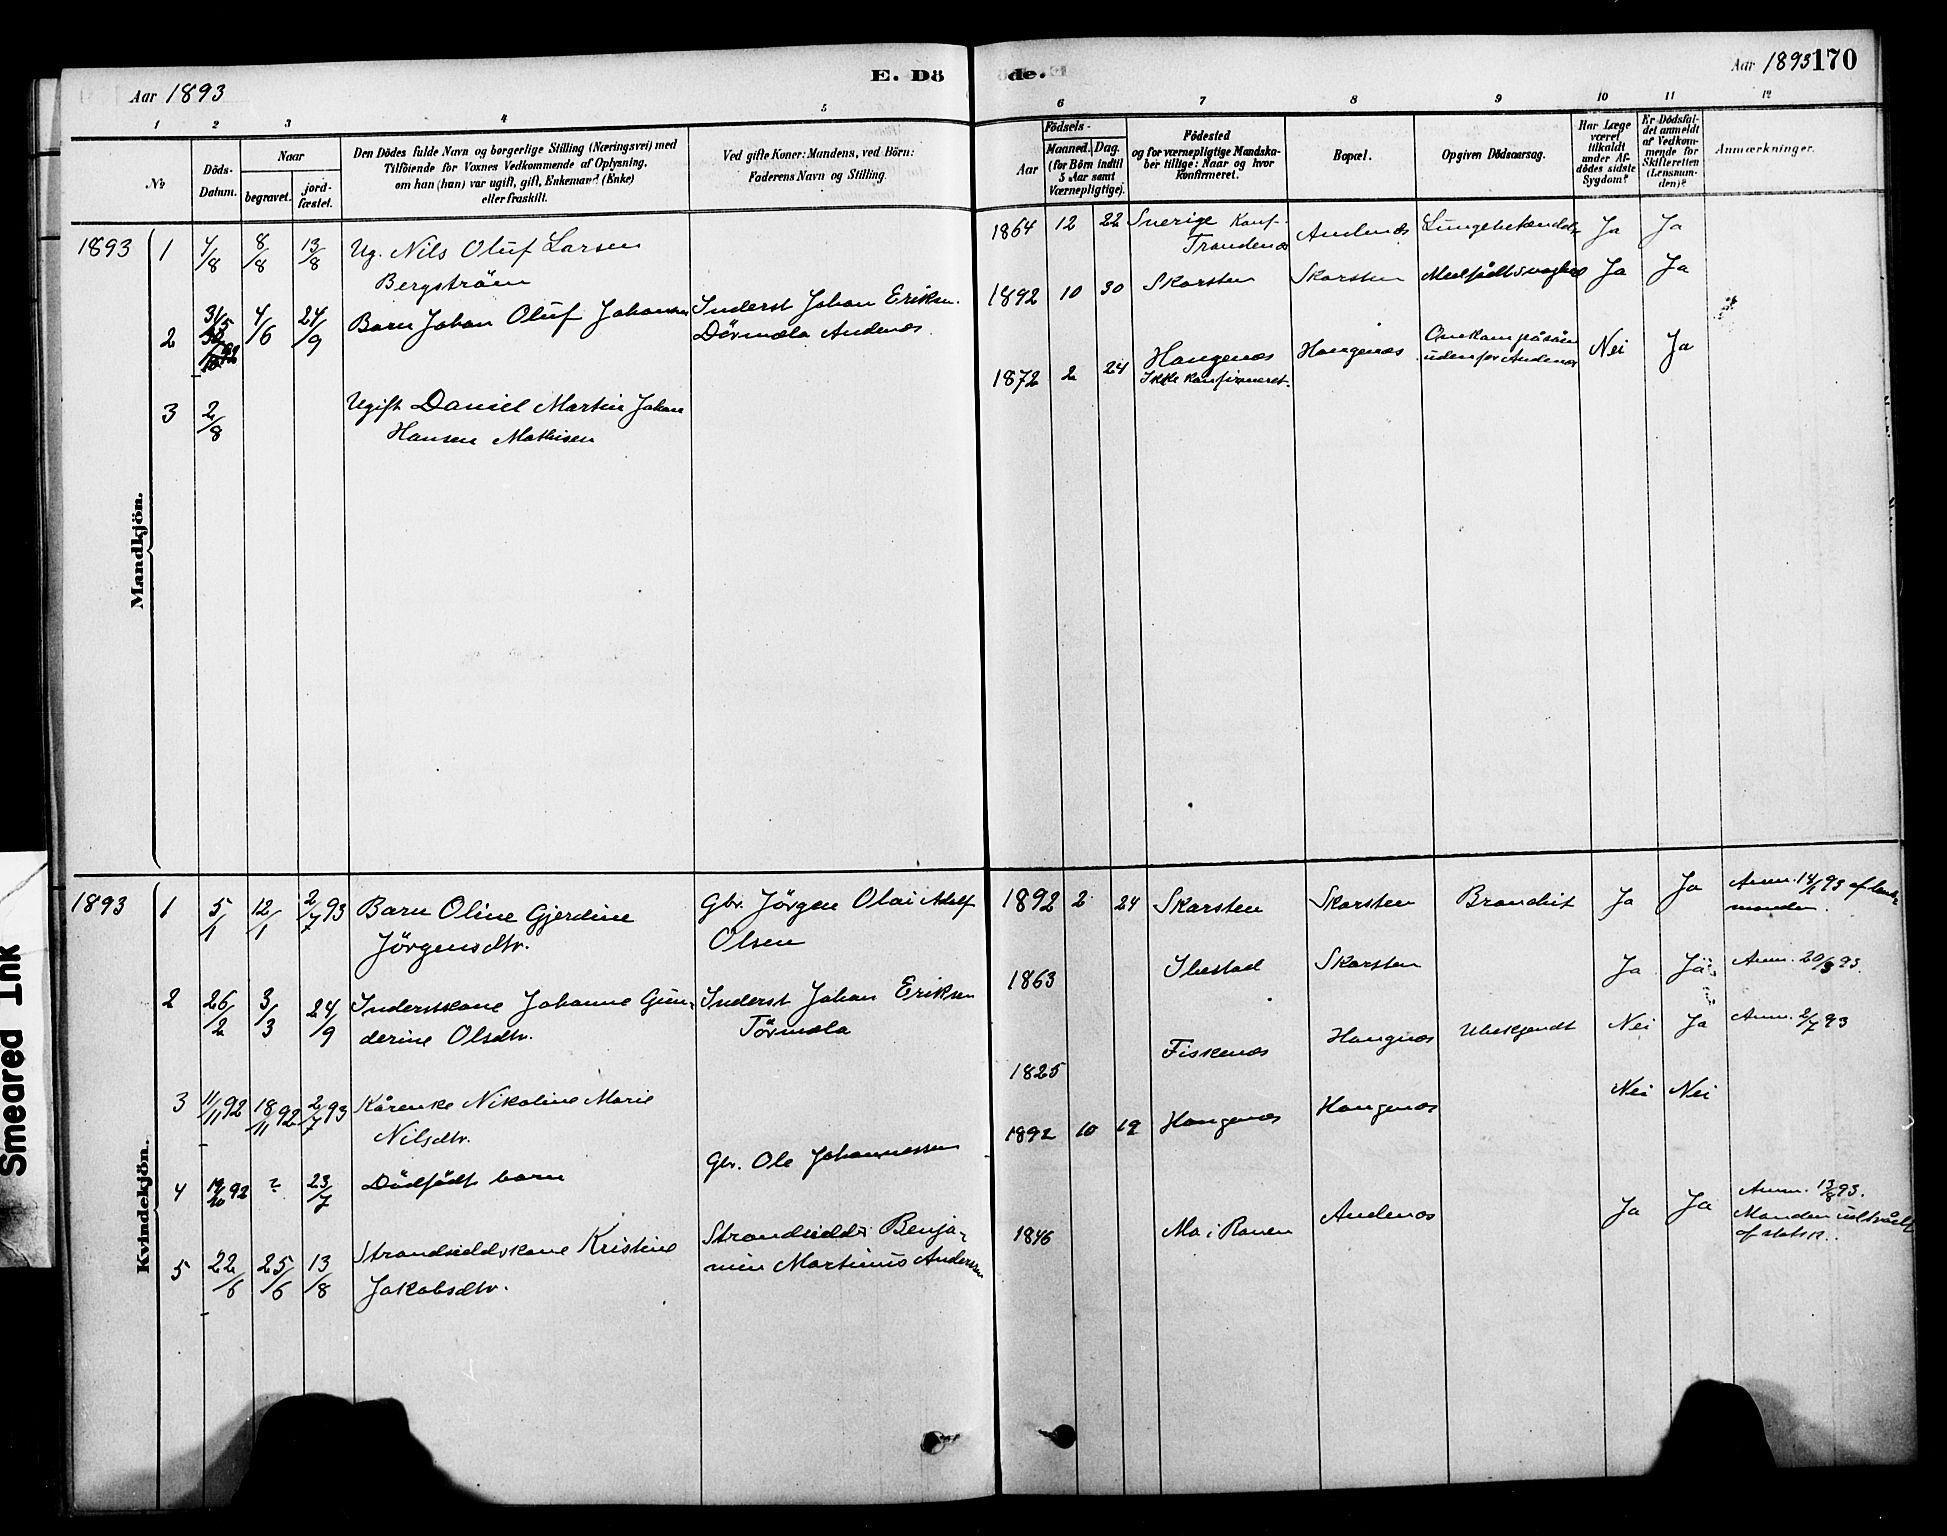 Aar 1893
E. Dö
de.
Aar 1893
170
1 2 3 4 5 6 7 8 9 10 11 12
No
Döds-
Datum.
Naar
begravet.
jord-
fæstet.
Den Dödes fulde Navn og borgerlige Stilling (Næringsvei) med
Tilföiende for Voxnes Vedkommende af Oplysning,
om han (hun) var ugift, gift, Enkemand (Enke)
eller fraskilt.
Ved gifte Koner: Mandens, ved Börn:
Faderens Navn og Stilling.
Födsels-
Aar
Maaned.
Dag.
(for Börn indtil
5 Aar samt
Værnepligtige).
Födested
og for værnepligtige Mandska-
ber tillige: Naar og hvor
konfirmeret.
Bopæl.
Opgiven Dödsaarsag.
Har Læge
været
tilkaldt
under Af-
dödes sidste
Sygdom?
Er Dödsfal-
det anmeldt
af Vedkom-
mende for
Skifteretten
(Lensman-
den)?
Anmærkninger.
Mandkjön.
1893 1 4/8 8/8 13/8 Ug. Nils Oluf Larsen
Bergström
1864 12 22 Sverige Konf.
Trondenæs Andenæs Lungebetændelse Ja Ja
2 31/5 4/6 24/9 Barn Johan Oluf Johansen Inderst Johan Eriksen
Dörmæla Andenæs
1892 10 30 Skarsten Skarsten Medfödt svaghed Ja Ja
3 2/8 Ugift Daniel Martin Johan
Hansen Mathisen
1872 2 24 Hangenæs
Ikke konfirmeret. Hangenæs Omkom på söen
udenfor Andenæs Nei Ja
Kvindekjön.
1893 1 5/1 12/1 2/7 93 Barn Oline Gjerdine
Jörgensdtr.
Gbr. Jörgen Olai Adolf
Olsen
1892 2 24 Skarsten Skarsten Ja Ja Anm. 14/1 93 af lends-
manden.
2 26/2 3/3 24/9 Inderstkone Johanne Gun-
derine Olsdtr.
Inderst Johan Eriksen
Törmæla
1863 Ibestad Skarsten Ja Ja Anm. 20/3 93.
3 11/11 92 18/11 92 2/7 93 Kårenke Nikoline Marie
Nilsdtr.
1825 Fiskenæs Hangnæs Ubekjendt Nei Ja Anm. 2/7 93
4 19/10 92 ? 23/7 Dödfödt barn
Gbr. Ole Johannessen
1892 10 19 Hangenæs Hangenæs Nei Nei
5 22/6 25/6 13/8 Strandsidderkone Kristine
Jakobsdtr.
Strandsidder Benja-
min Martinus Andersen
1846 Mo i Ranen Andenæs Ja Ja Anm. 13/8 93.
Manden
Smeared Ink